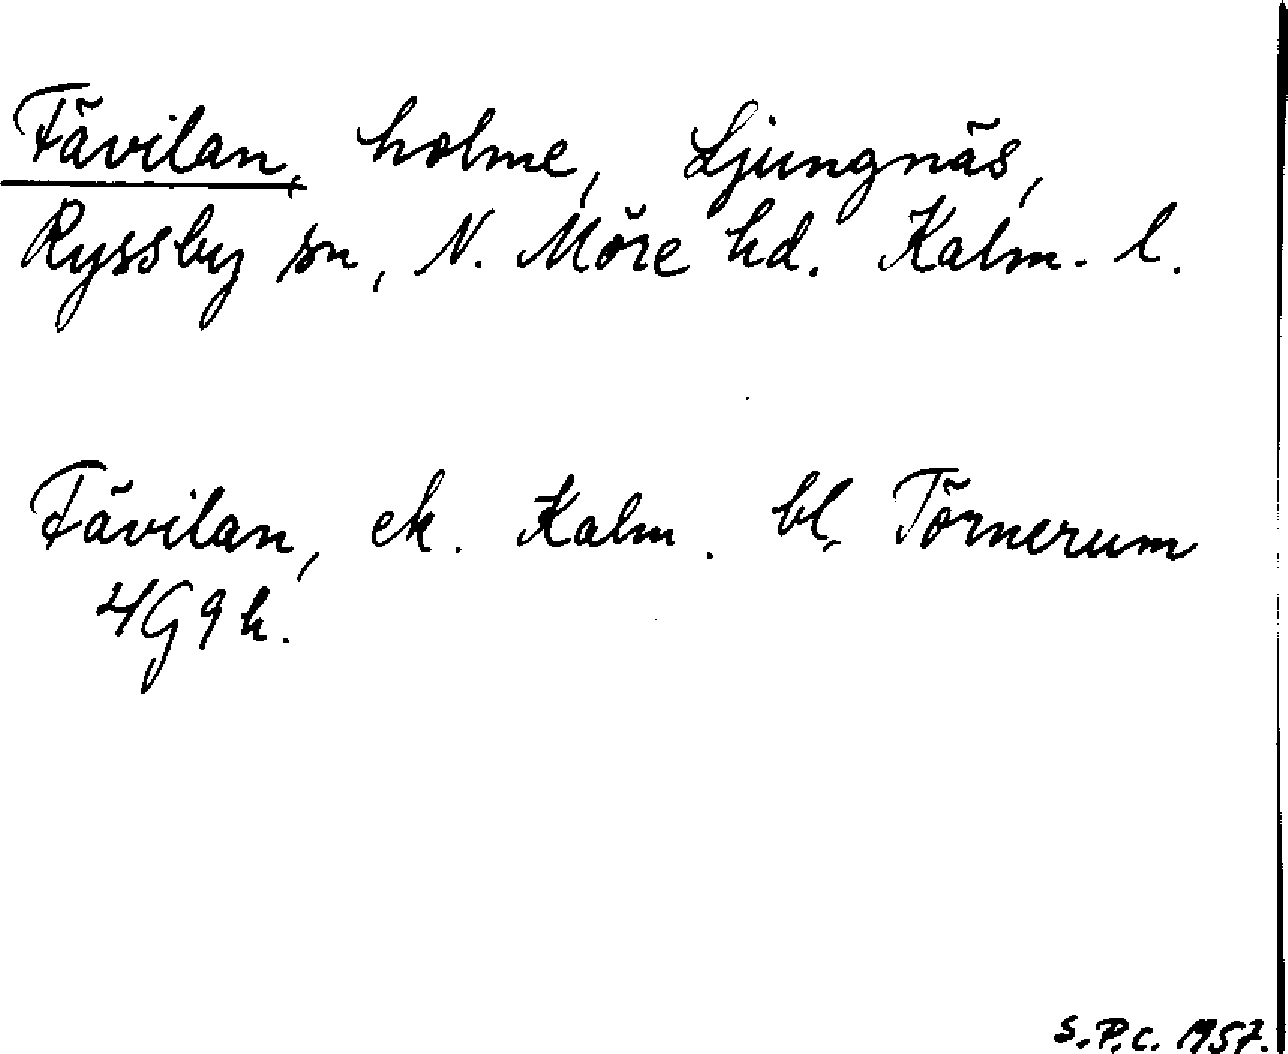 Fävilan, holme, Ljungnäs,
Ryssby sn, N. Möre hd. Kalm. l.
Fävilan, ek. Kalm. bl. Törnerum
4G9h.
S.P.C. 1957.